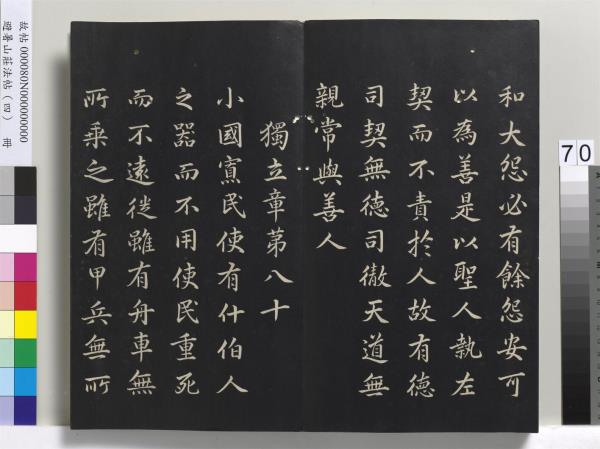 和大怨必有餘怨安可
以為善是以聖人執左
契而不責於人故有德
司契無德司徹天道無
親常與善人
獨立章第八十
小國寡民使有什伯人
之器而不用使民重死
而不遠徙雖有舟車無
所乘之雖有甲兵無所
故帖 000080N000000000
避暑山莊法帖(四) 冊
70